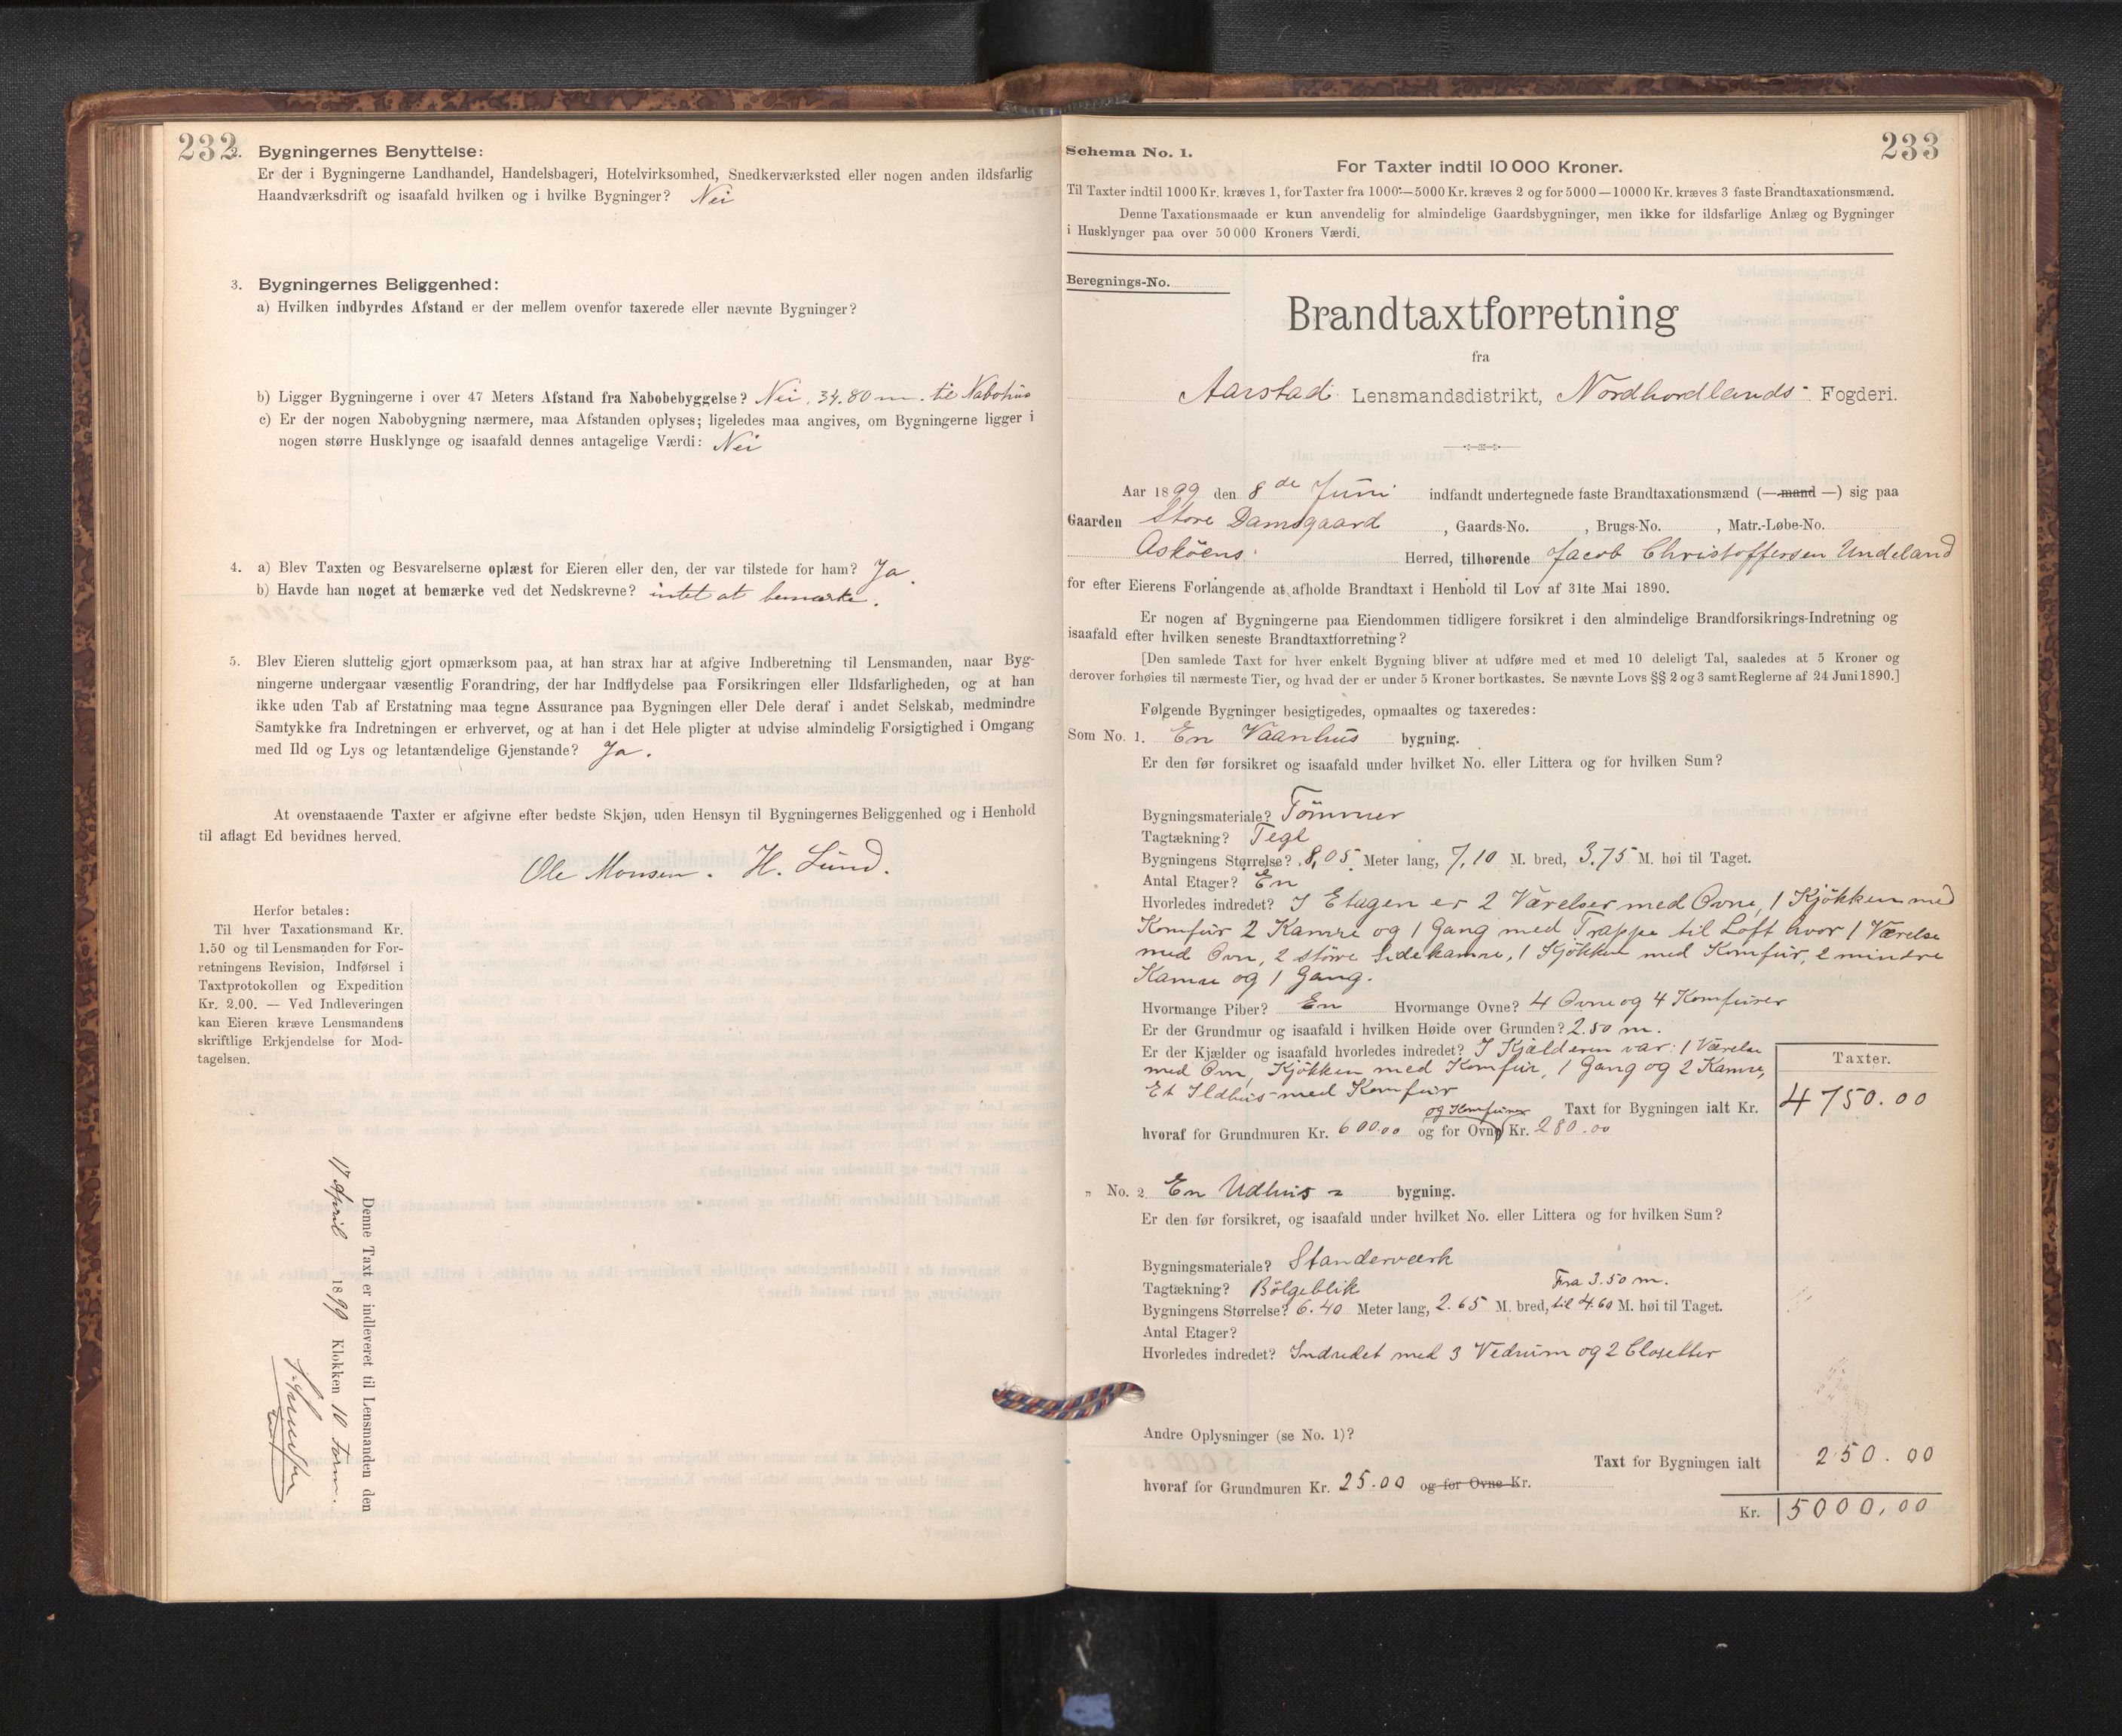 232
2. Bygningernes Benyttelse:
Er der i Bygningerne Landhandel, Handelsbageri, Hotelvirksomhed, Snedkerværksted eller nogen anden ildsfarlig
Haandværksdrift og isaafald hvilken og i hvilke Bygninger? Nei
3. Bygningernes Beliggenhed:
a) Hvilken indbyrdes Afstand er der mellem ovenfor taxerede eller nævnte Bygninger?
b) Ligger Bygningerne i over 47 Meters Afstand fra Nabobebyggelse? Nei, 34.80 m. til Nabohus
c) Er der nogen Nabobygning nærmere, maa Afstanden oplyses; ligeledes maa angives, om Bygningerne ligger i
nogen større Husklynge og isaafald dennes antagelige Værdi: Nei
4. a) Blev Taxten og Besvarelserne oplæst for Eieren eller den, der var tilstede for ham? Ja.
b) Havde han noget at bemærke ved det Nedskrevne? intet at bemærke.
5. Blev Eieren sluttelig gjort opmærksom paa, at han strax har at afgive Indberetning til Lensmanden, naar Byg-
ningerne undergaar væsentlig Forandring, der har Indflydelse paa Forsikringen eller Ildsfarligheden, og at han
ikke uden Tab af Erstatning maa tegne Assurance paa Bygningen eller Dele deraf i andet Selskab, medmindre
Samtykke fra Indretningen er erhvervet, og at han i det Hele pligter at udvise almindelig Forsigtighed i Omgang
med Ild og Lys og letantændelige Gjenstande? Ja.
At ovenstaaende Taxter er afgivne efter bedste Skjøn, uden Hensyn til Bygningernes Beliggenhed og i Henhold
til aflagt Ed bevidnes herved.
Ole Monsen. H. Lund.
Herfor betales:
Til hver Taxationsmand Kr.
1.50 og til Lensmanden for For-
retningens Revision, Indførsel i
Taxtprotokollen og Expedition
Kr. 2.00. — Ved Indleveringen
kan Eieren kræve Lensmandens
skriftlige Erkjendelse for Mod-
tagelsen.
Denne Taxt er indleveret til Lensmanden den
17 April 1899 Klokken 10 Form.
233
Schema No. 1.
For Taxter indtil 10 000 Kroner.
Til Taxter indtil 1000 Kr. kræves 1, for Taxter fra 1000—5000 Kr. kræves 2 og for 5000—10000 Kr. kræves 3 faste Brandtaxationsmænd.
Denne Taxationsmaade er kun anvendelig for almindelige Gaardsbygninger, men ikke for ildsfarlige Anlæg og Bygninger
i Husklynger paa over 50 000 Kroners Værdi.
Beregnings-No.
Brandtaxtforretning
fra
Aarstad Lensmandsdistrikt, Nordhordlands Fogderi.
Aar 1899 den 8de Juni indfandt undertegnede faste Brandtaxationsmænd (— mand —) sig paa
Gaarden Store Damsgaard , Gaards-No. , Brugs-No. , Matr.-Løbe-No.
Asköens Herred, tilhørende Jacob Christoffersen Undeland
for efter Eierens Forlangende at afholde Brandtaxt i Henhold til Lov af 31te Mai 1890.
Er nogen af Bygningerne paa Eiendommen tidligere forsikret i den almindelige Brandforsikrings-Indretning og
isaafald efter hvilken seneste Brandtaxtforretning?
[Den samlede Taxt for hver enkelt Bygning bliver at udføre med et med 10 deleligt Tal, saaledes at 5 Kroner og
derover forhøies til nærmeste Tier, og hvad der er under 5 Kroner bortkastes. Se nævnte Lovs §§ 2 og 3 samt Reglerne af 24 Juni 1890.]
Følgende Bygninger besigtigedes, opmaaltes og taxeredes:
Som No. 1. En Vaanhus bygning.
Er den før forsikret og isaafald under hvilket No. eller Littera og for hvilken Sum?
Bygningsmateriale? Tömmer
Tagtækning? Tegl
Bygningens Størrelse? 8,05 Meter lang, 7,10 M. bred, 3.75 M. høi til Taget.
Antal Etager? En
Hvorledes indredet? I Etagen er 2 Værelser med Ovne, 1 Kjökken med
Komfur 2 Kamre og 1 Gang med Trappe til Loft hvor 1 Værelse
med Ovn, 2 större Sidekamre, 1 Kjökken med Komfur, 2 mindre
Kamre og 1 Gang.
Hvormange Piber? En Hvormange Ovne? 4 Ovne og 4 Komfurer
Er der Grundmur og isaafald i hvilken Høide over Grunden? 2.50 m.
Er der Kjælder og isaafald hvorledes indredet? I Kjælderen var: 1 Værelse
med Ovn, Kjökken med Komfur, 1 Gang og 2 Kamre,
Et Ildhus med Komfur
Taxter.
Taxt for Bygningen ialt Kr. 4750.00
og Komfurer
hvoraf for Grundmuren Kr. 600.00 og for Ovne Kr. 280.00
" No. 2 En Udhus bygning.
Er den før forsikret, og isaafald under hvilket No. eller Littera og for hvilken Sum?
Bygningsmateriale? Standerværk
Tagtækning? Bölgeblik
Fra 3.50 m.
Bygningens Størrelse? 6.40 Meter lang, 2.65 M. bred, til 4.60 M. høi til Taget.
Antal Etager?
Hvorledes indredet? Indredet med 3 Vedrum og 2 Closetter
Andre Oplysninger (se No. 1)?
Taxt for Bygningen ialt 250.00
hvoraf for Grundmuren Kr. 25.00 og for Ovne Kr.
Kr. 5000,00